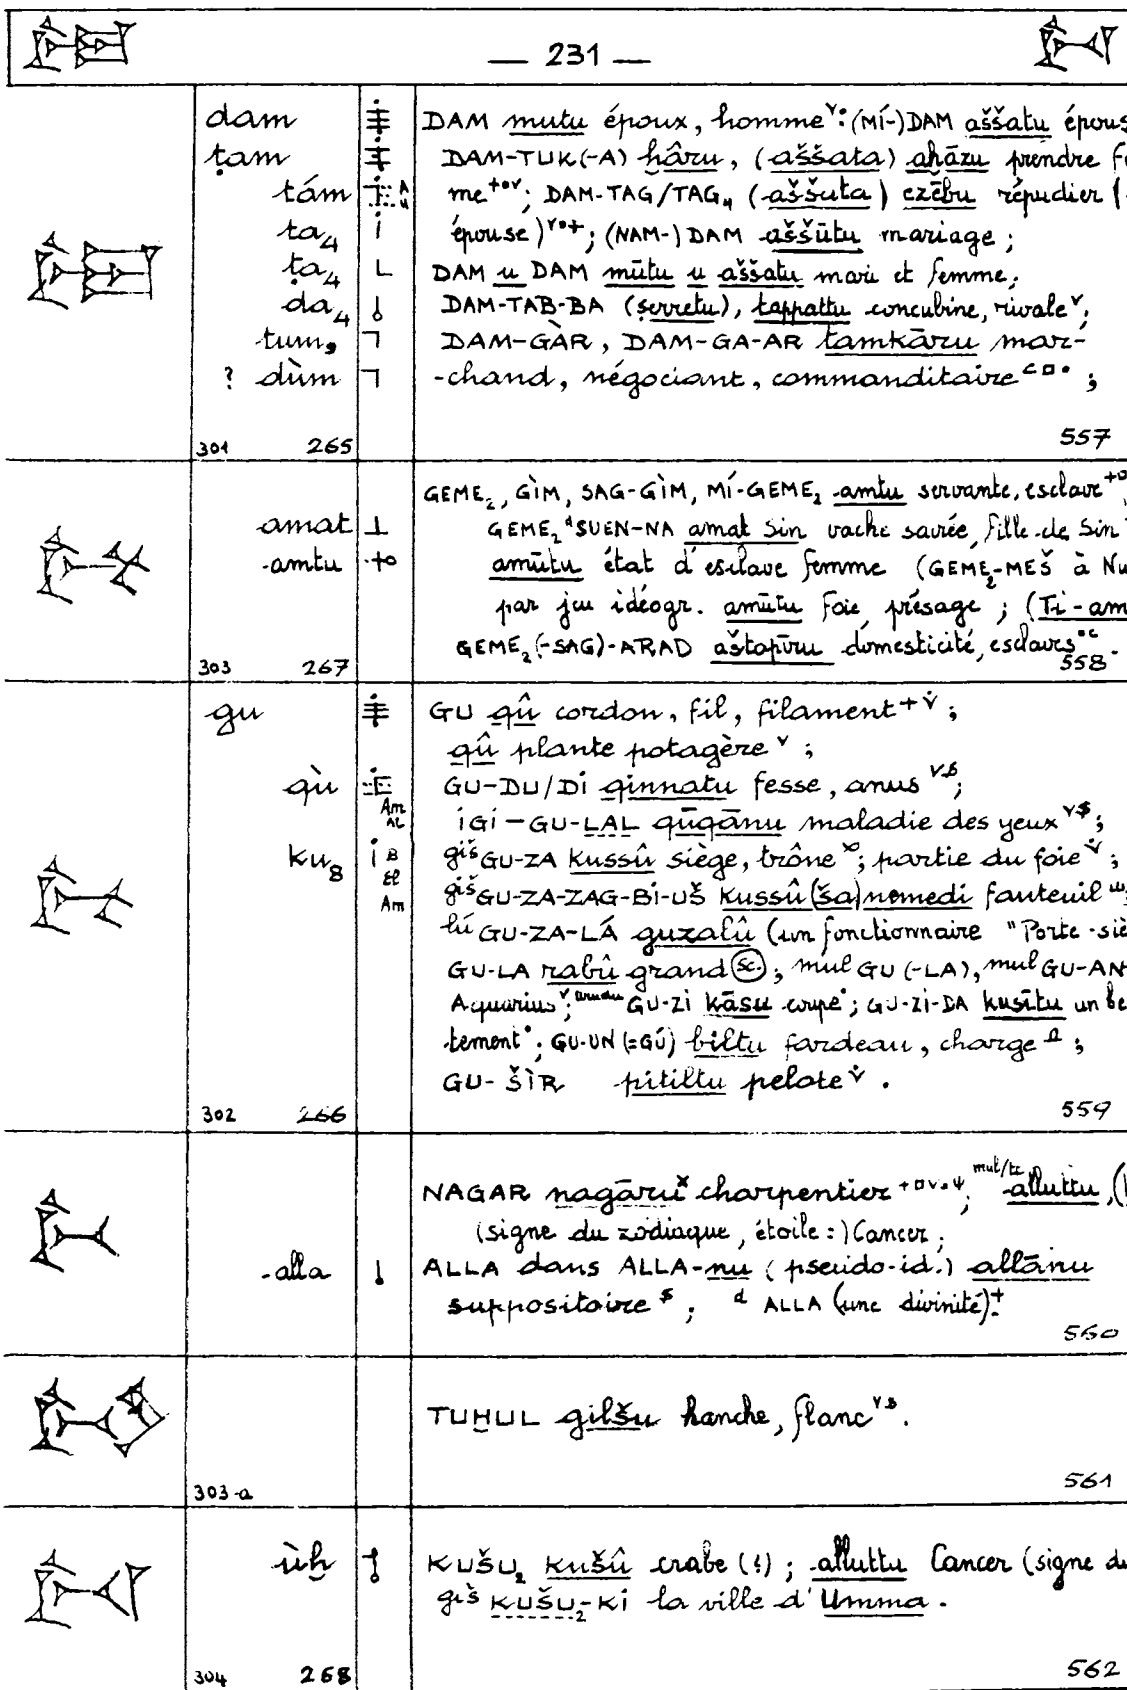 — 231 —
dam
ṭam
tám
ta₄
ṭa₄
da₄
tum₉
? dùm
301 265
DAM mutu époux, homme ᵛ: (MÍ-)DAM aššatu épous
DAM-TUK(-A) hâru, (aššata) ahāzu prendre fe
me ⁺ᵒᵛ; DAM-TAG/TAG₄ (aššuta) ezēbu répudier (
épouse); (NAM-)DAM aššūtu mariage ;
DAM u DAM mūtu u aššatu mari et femme;
DAM-TAB-BA (ṣerretu), tappattu concubine, rivale ᵛ;
DAM-GÀR, DAM-GA-AR tamkāru mar-
-chand, négociant, commanditaire ;
557
amat
amtu
303 267
GEME₂, GÌM, SAG-GÌM, MÍ-GEME₂ amtu servante, esclave
GEME₂ ᵈSUEN-NA amat Sin vache sacrée, fille de Sin
amūtu état d'esclave femme (GEME₂-MEŠ à Nu
par jeu idéogr. amūtu foie, présage ; (Ti-am
GEME₂(-SAG)-ARAD aštapīru domesticité, esclaves.
558
gu
qù
Am
AL
ku₈
B
El
Am
302 266
GU qû cordon, fil, filament ;
qû plante potagère ᵛ ;
GU-DU/DI qinnatu fesse, anus ;
IGI-GU-LAL qūqānu maladie des yeux ;
giš GU-ZA kussû siège, trône ; partie du foie ;
giš GU-ZA-ZAG-BI-UŠ kussû (ša) nemedi fauteuil ;
lú GU-ZA-LÁ guzalû (un fonctionnaire "Porte-siè
GU-LA rabû grand (sc.) ; mul GU(-LA), mul GU-AN
Aquarius ᵛ; urudu GU-ZI kāsu coupe ; GU-ZI-DA kusītu un vê
tement ; GU-UN (=GÚ) biltu fardeau, charge ;
GU-ŠÌR pitiltu pelote .
559
alla
NAGAR nagāru charpentier ; mul/te alluttu, (
(signe du zodiaque, étoile :) Cancer ;
ALLA dans ALLA-nu (pseudo-id.) allānu
suppositoire ; d ALLA (une divinité)
560
303-a
TUḪUL gilšu hanche, flanc.
561
ùḫ
304 268
KUŠU₂ kušû crabe (?) ; alluttu Cancer (signe du
giš KUŠU₂-KI la ville d'Umma .
562